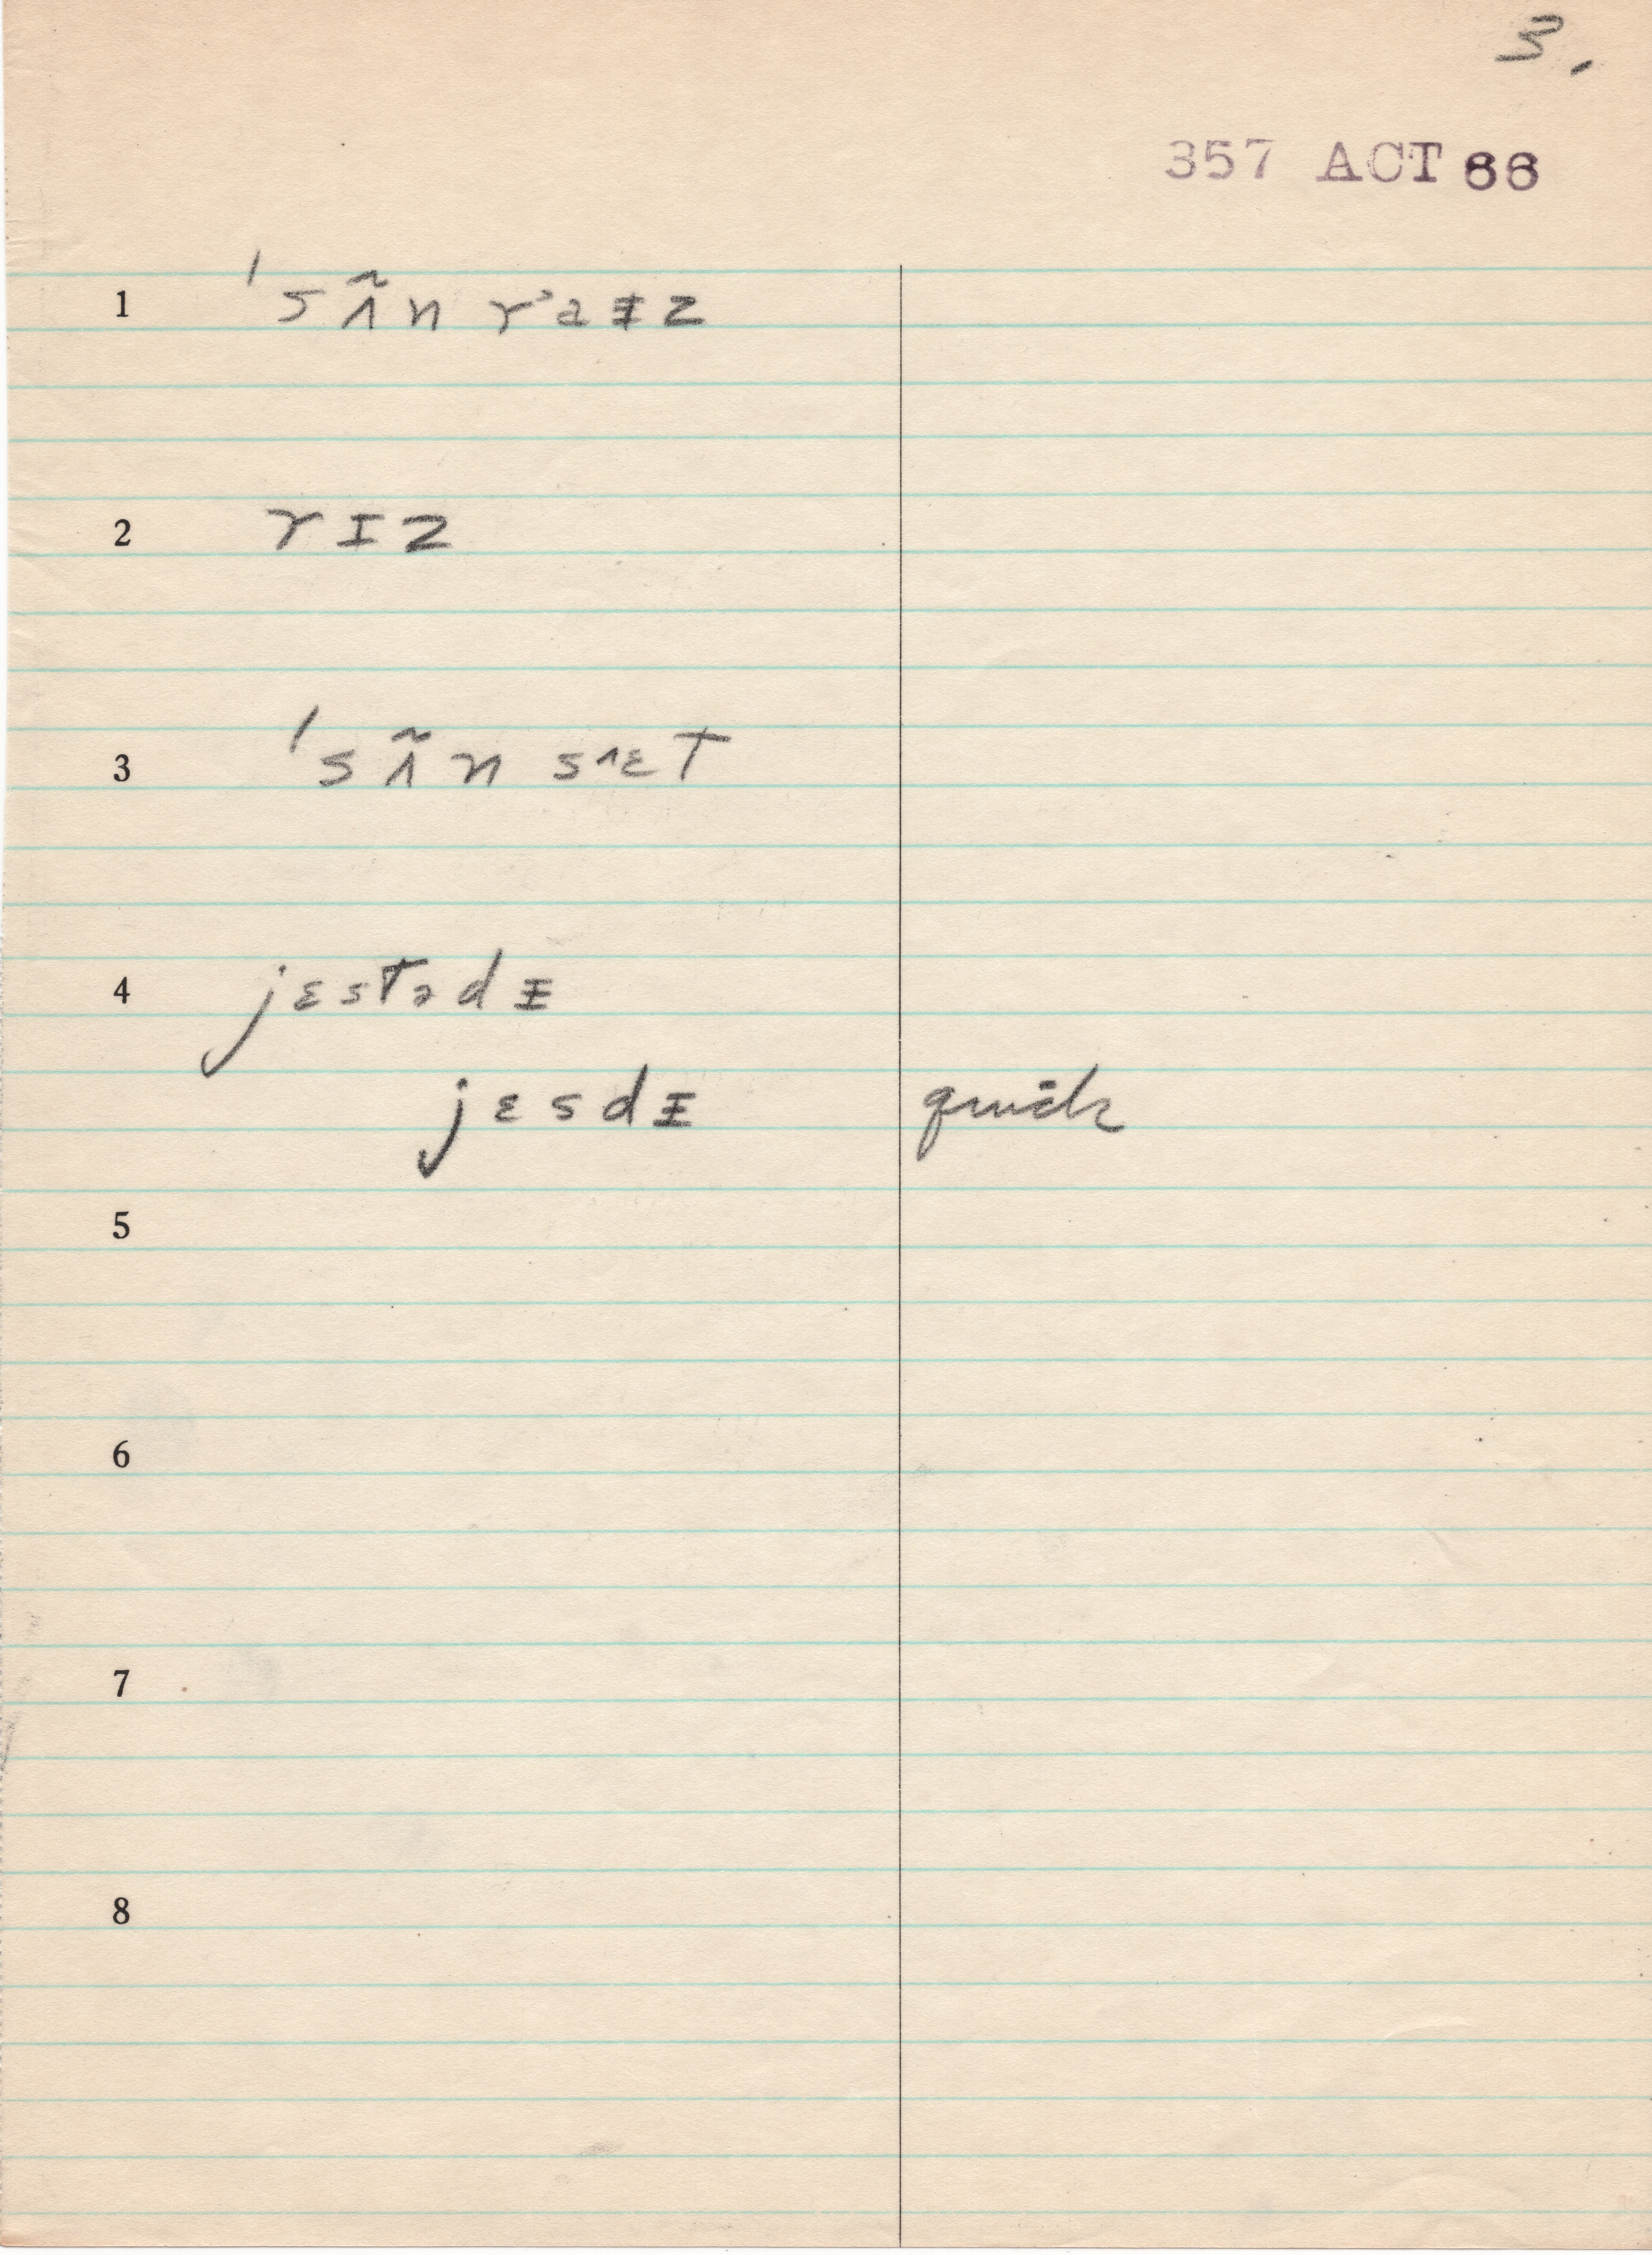 3.
357 ACT 66
1 ˈsʌ̃n r᾽aᵻz
2 rɪz
3 ˈsʌ̃n s˄ɛt
4 jɛstədᵻ
jɛsdᵻ quick
5
6
7
8